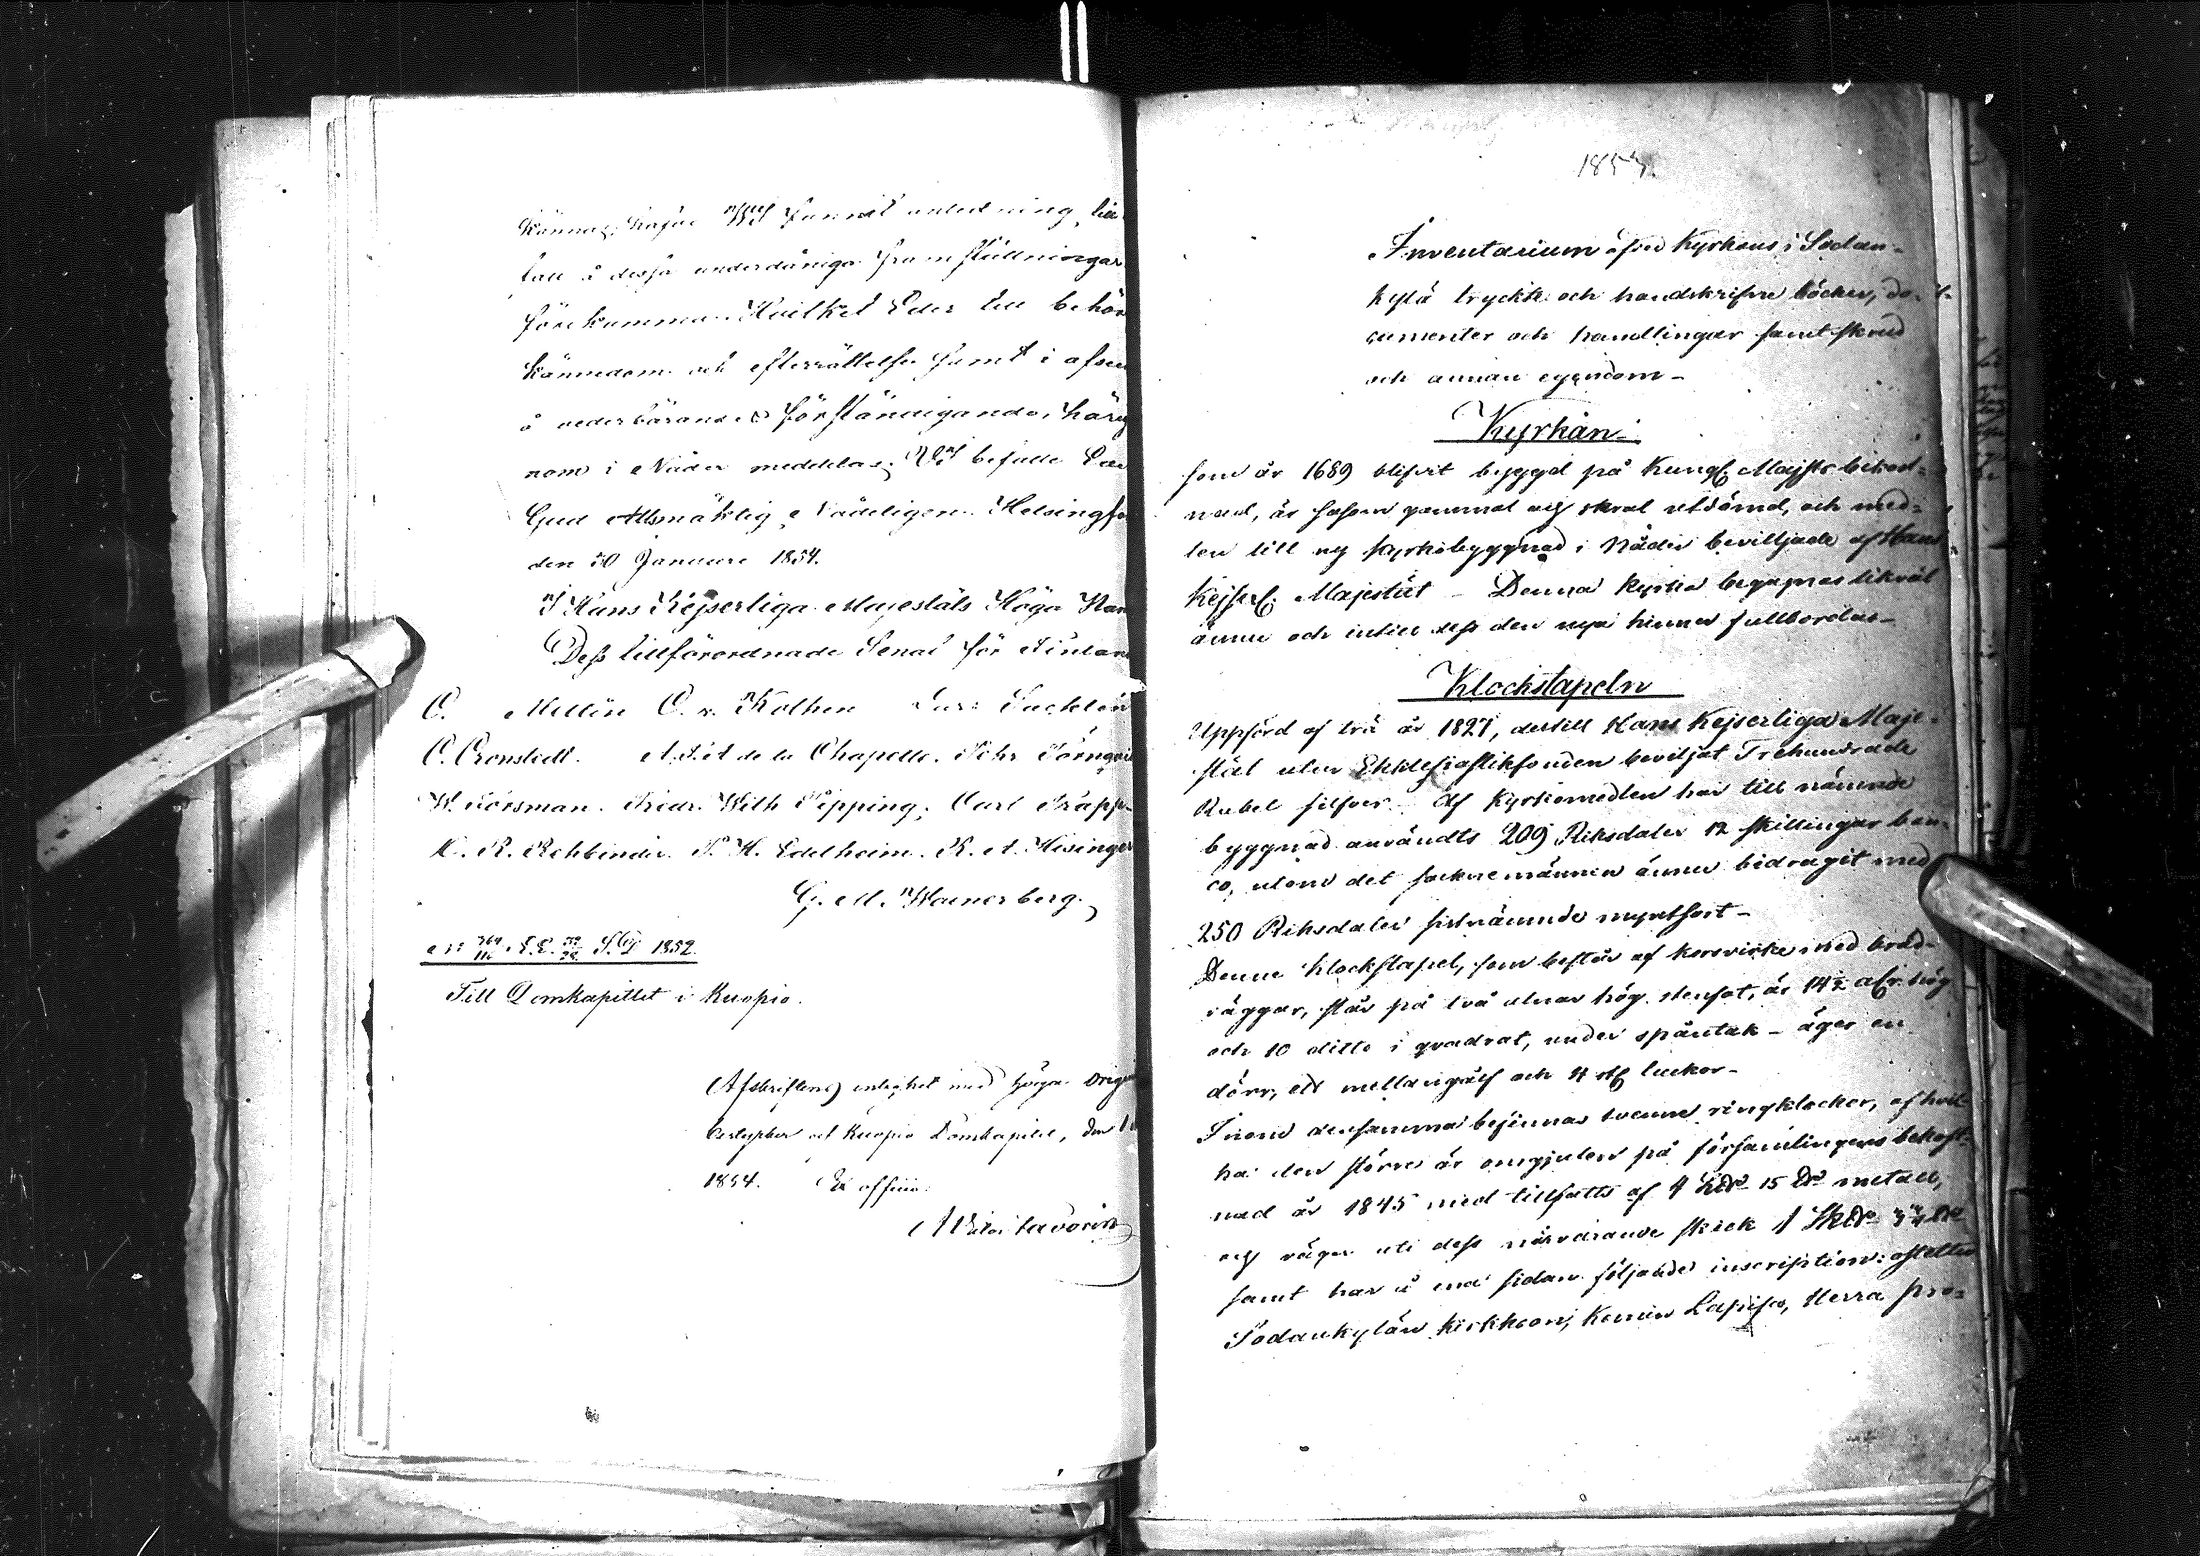 kännas, hafva Wi funnit anledning till
tall å dessa underdåniga framställningar
förekomma. Hvilket Eder till behör
kännedom och efterrättelse samt i afseende
å vederbörandes förständigande, häri
nom i Nåder meddelas; Vi befalle Eder
Gud Allsmäktig Nådeligen. Helsingfo
den 30 Januari 1854.
I Hans Kejserliga Majestäts Höga Nam
Dess tillförordnade Senat för Finland
C. Mellin O. v. Kothen Lars Sacklén
C. Cronstedt. A. F. A. de la Chapelle. Fehr Törnqvis
W. Forsman. Fredr. Wilh Pipping. Carl Trapp.
K. R. Rehbinder. S. H. Edelheim. K. A. Hisinger
G. M. Wænerberg.
N: 769/116 E.E. S.D 1852.
Till Domkapitlet i Kuopio.
Afskriftens enlighet med höga orig
betygher och Kuopio Domkapitel, den
1854. Ex officio.
1854.
Inventarium öfver Kyrkans i Sodan-
kylä tryckta och handskrifne böcker, do-
cumenter och handlingar samt skrud
och annan egendom –
Kyrkan.
som år 1689 blifvit byggd på Kungl. Majsts bekost-
nad, är såsom gammal och skral utdömd, och med-
len till ny kyrkobyggnad i Nåder beviljade af Hans
Kejserl. Majestät – Denna kyrka begagnas likväl
ännu och intill dess den nya hinner fullbordas –
Klockstapeln
Uppförd af trä år 1827, dertill Hans Kejserliga Maje-
stät utur Ekklesiastikfonden beviljat Trehundrade
Rubel silfver – Af Kyrkomedlen har till nämnde
byggnad användts 209 Riksdaler 12 skillingar ban-
co, utom det socknemännen ännu bidragit med
250 Riksdaler sistnämnde myntsort –
Denne klockstapel, som består af korsvirke med bräd-
väggar, står på två alnar hög stenfot, är 14½ alnr hög
och 10 ditto i qvadrat, under spåntak – äger en
dörr, ett mellangolf och 4 st luckor –
Inom densamma befinnas tvenne ringklockor, af hvil-
ka den större är omgjuten på församlingens bekost-
nad år 1845 med tillsatts af 4 L℔ 15 ℔ metall,
och väger uti dess närvarande skick 1 Sk℔
samt har å ena sidan följande inscription:
Sodankylän kirkkoon, Kemin Lapisa, Herra pro-